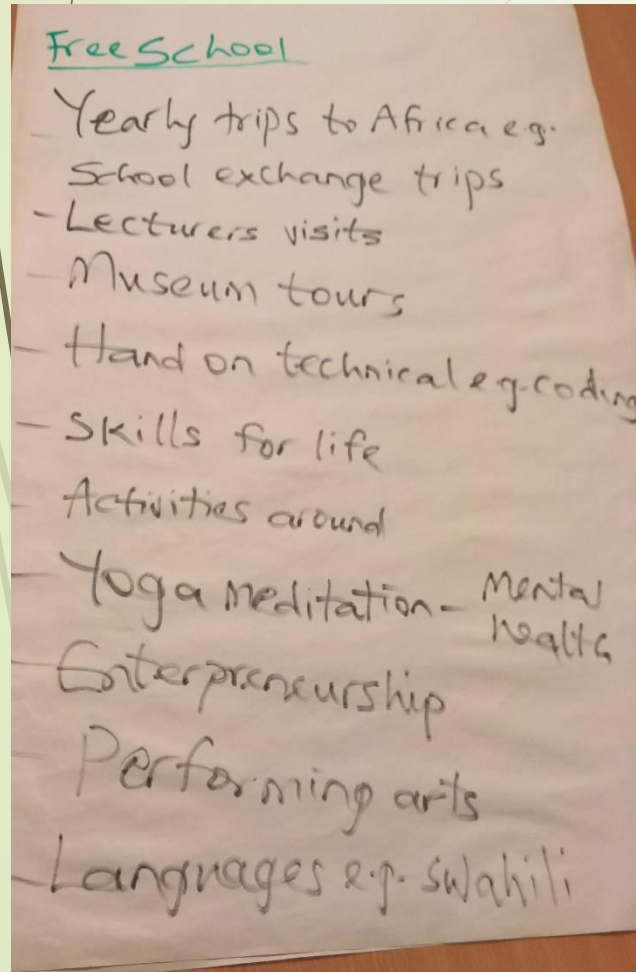 Free School
- Yearly trips to Africa e.g.
School exchange trips
- Lecturers visits
- Museum tours
- Hand on technical e.g. coding
- Skills for life
- Activities around
- Yoga meditation - Mental
health
- Enterpreneurship
- Performing arts
- Languages e.g. swahili